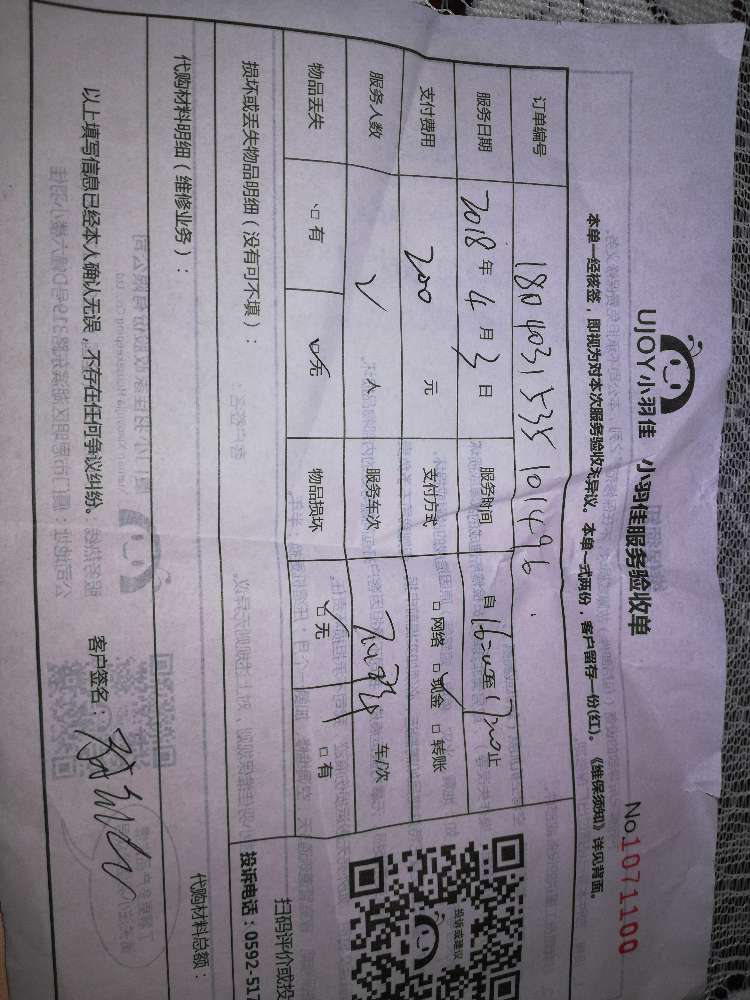 UJOY小羽佳 小羽佳服务验收单
No.1071100
本单一经核签，即视为对本次服务验收无异议。本单一式两份，客户留存一份(红)。《维保须知》详见背面。
订单编号 1804031535101496
服务日期 2018年4月3日 服务时间 自16:00至17:00止
支付费用 200元 支付方式 □网络 □现金 □转账
服务人数 2人 服务车次 车/次
物品丢失 □有 □无 物品损坏 □无 □有
损坏或丢失物品明细（没有可不填）：
代购材料明细（维修业务）：
代购材料总额：
以上填写信息已经本人确认无误，不存在任何争议纠纷。 客户签名：
投诉或建议
扫码评价或投
投诉电话：0592-517